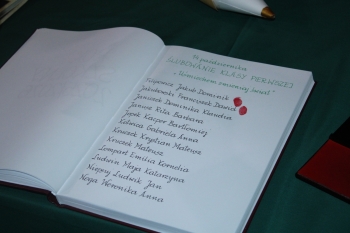 13 października
ŚLUBOWANIE KLASY PIERWSZEJ
"Uśmiechem zmieniaj świat"
Jakub Dominik
Jakubowski Franciszek Dawid
Janiszek Dominika Klaudia
Janosz Rita Barbara
Jopek Kacper Bartłomiej
Kolasa Gabriela Anna
Kruczek Krystian Mateusz
Kruczek Mateusz
Lompart Emilia Kornelia
Ludwin Maja Katarzyna
Ludwik Jan
Noga Weronika Anna